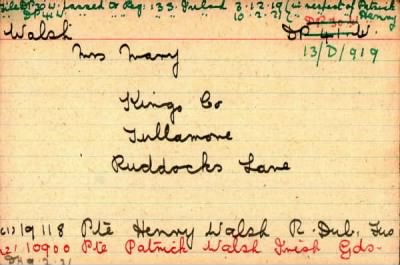 File DP30W. passed to Reg: 133. Ireland 3.12.19 (in respect of Patrick
DP41W. 10.2.21 ( " " Henry
Walsh DP 30 W.
DP 41 W.
Mrs Mary 13/D/919
Kings Co
Tullamore
Ruddocks Lane
(1) 19118 Pte Henry Walsh R. Dub. Fus
(2) 10900 Pte Patrick Walsh Irish Gds.